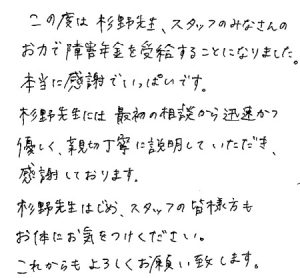 この度は 杉野先生、スタッフのみなさんの
お力で障害年金を受給することになりました。
本当に感謝でいっぱいです。
杉野先生には 最初の相談から迅速かつ
優しく、親切丁寧に説明していただき、
感謝しております。
杉野先生はじめ、スタッフの皆様方も
お体にお気をつけください。
これからも よろしくお願い致します。